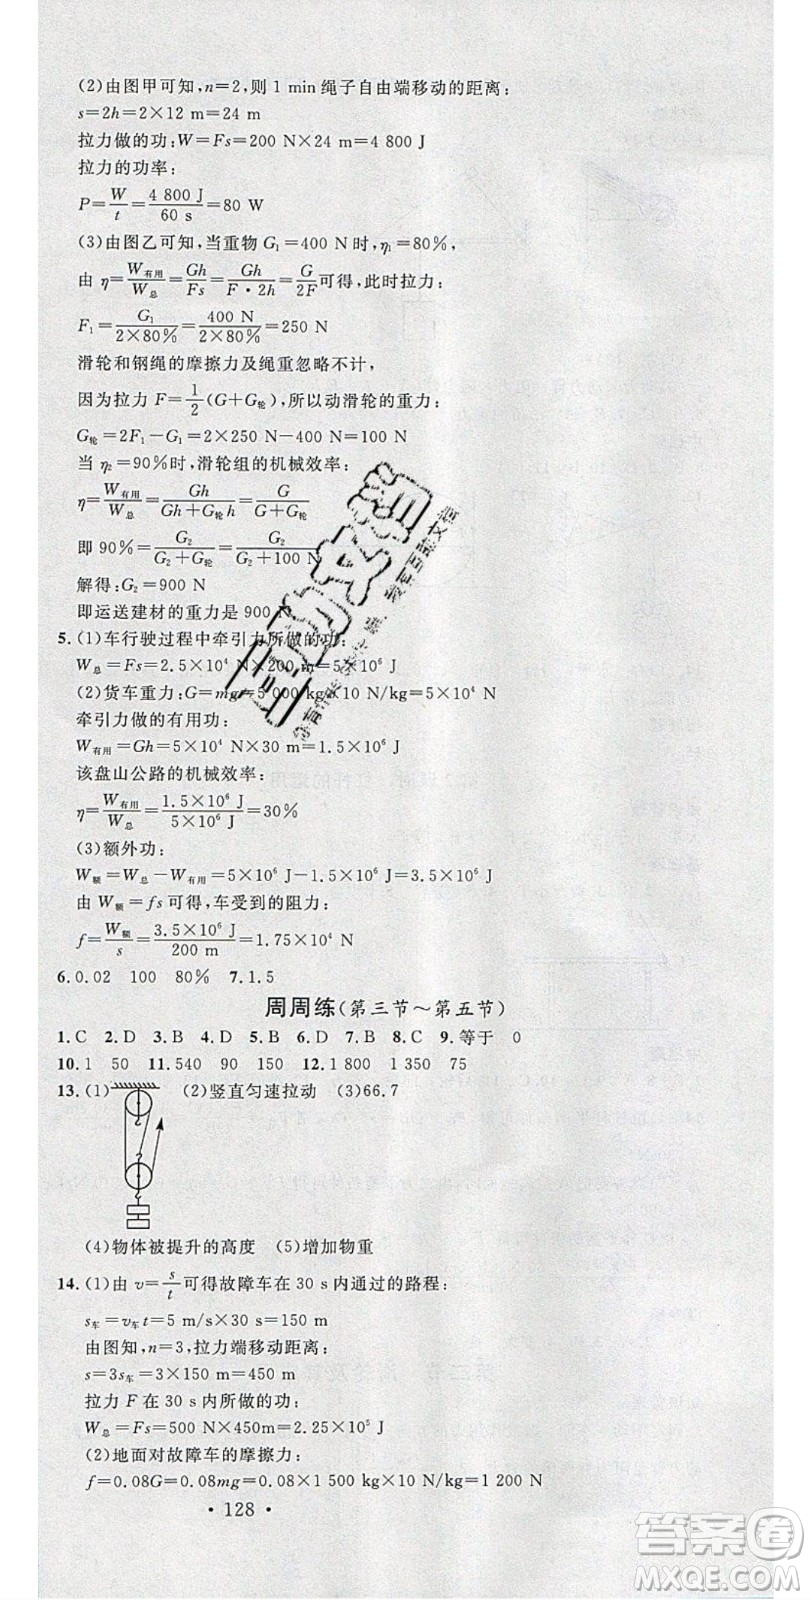 (2)由图甲可知,n=2,则 1 min 绳子自由端移动的距离:
s=2h=2×12 m=24 m
拉力做的功:W=Fs=200 N×24 m=4 800 J
拉力的功率:
P=W/t=4 800 J/60 s=80 W
(3)由图乙可知,当重物 G₁=400 N 时,η₁=80%,
由 η=W有用/W总=Gh/Fs=Gh/F·2h=G/2F可得,此时拉力:
F₁=G₁/2×80%=400 N/2×80%=250 N
滑轮和钢绳的摩擦力及绳重忽略不计,
因为拉力 F=1/2(G+G轮),所以动滑轮的重力:
G轮=2F₁-G₁=2×250 N-400 N=100 N
当 η₂=90%时,滑轮组的机械效率:
η=W有用/W总=Gh/Gh+G轮h=G/G+G轮
即 90%=G₂/G₂+G轮=G₂/G₂+100 N
解得:G₂=900 N
即运送建材的重力是 900 N
5.(1)车行驶过程中牵引力所做的功:
W总=Fs=2.5×10⁴ N×200 m=5×10⁶ J
(2)货车重力:G=mg=5 000 kg×10 N/kg=5×10⁴ N
牵引力做的有用功:
W有用=Gh=5×10⁴ N×30 m=1.5×10⁶ J
该盘山公路的机械效率:
η=W有用/W总=1.5×10⁶ J/5×10⁶ J=30%
(3)额外功:
W额=W总-W有用=5×10⁶ J-1.5×10⁶ J=3.5×10⁶ J
由 W额=fs 可得,车受到的阻力:
f=W额/s=3.5×10⁶ J/200 m=1.75×10⁴ N
6.0.02 100 80% 7.1.5
周周练(第三节~第五节)
1.C 2.D 3.B 4.A 5.B 6.D 7.B 8.C 9.等于 0
10.1 50 11.540 90 150 12.1 800 1 350 75
13.(1) (2)竖直匀速拉动 (3)66.7
(4)物体被提升的高度 (5)增加物重
14.(1)由 v=s/t可得故障车在 30 s 内通过的路程:
s车=v车t=5 m/s×30 s=150 m
由图知,n=3,拉力端移动距离:
s=3s车=3×150 m=450 m
拉力 F 在 30 s 内所做的功:
W总=Fs=500 N×450m=2.25×10⁵ J
(2)地面对故障车的摩擦力:
f=0.08G=0.08mg=0.08×1 500 kg×10 N/kg=1 200 N
·128·
答案圈
MXQE.COM